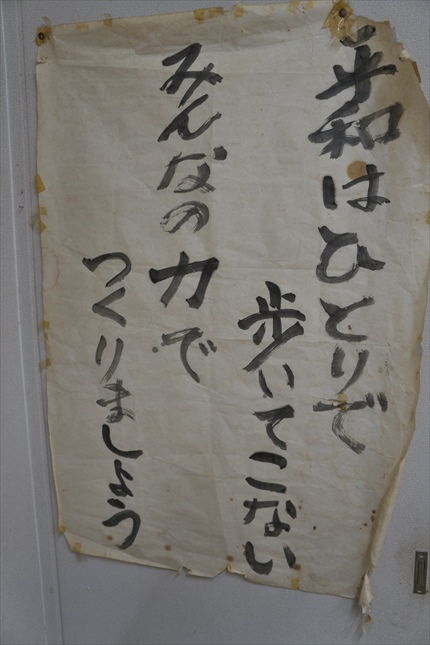 平和はひとりで
歩いてこない
みんなの力で
つくりましょう